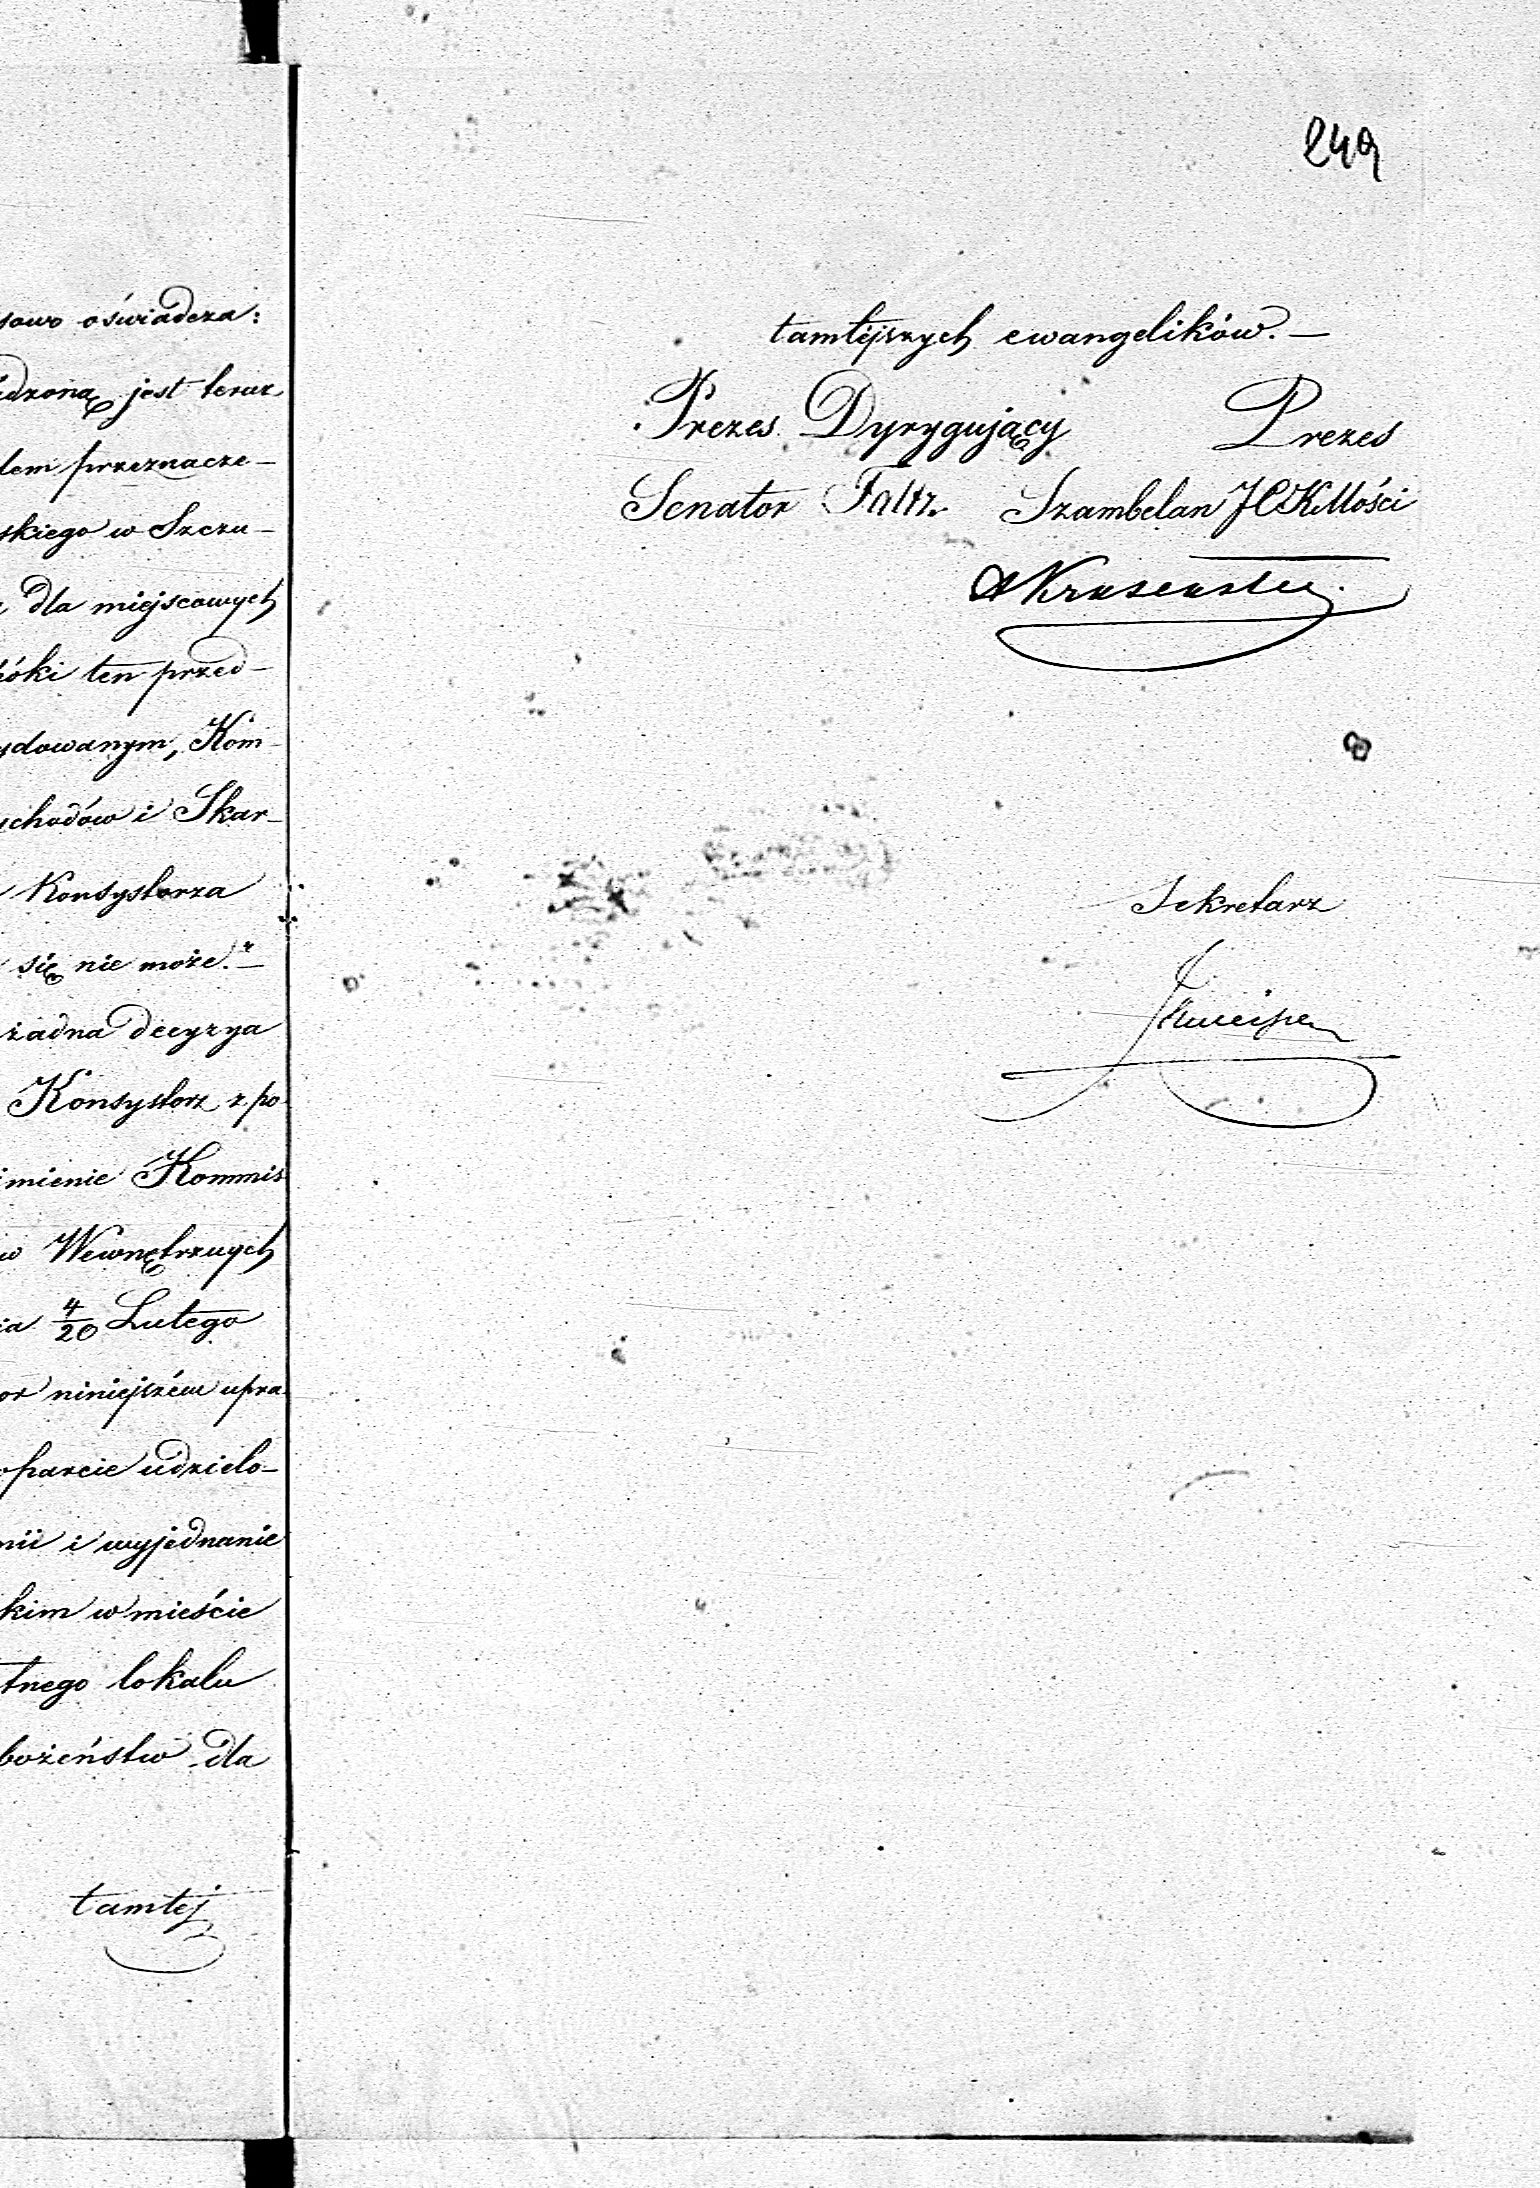 oświadcza:
jest teraz
przeznacze-
skiego w Szczu-
dla miejscowych
ten przed-
Kom-
i Skar-
Konsystorza
się nie może."—
żadna decyzya
Konsystorz z po
imienie Kommis
Wewnętrznych
4/20 Lutego
niniejszém upra
udzielo-
i wyjednanie
kim w mieście
tnego lokalu
dla
tamtej
249
tamtejszych ewangelików.—
Prezes Dyrygujący Prezes
Senator Faltz. Szambelan JCKMości
Sekretarz